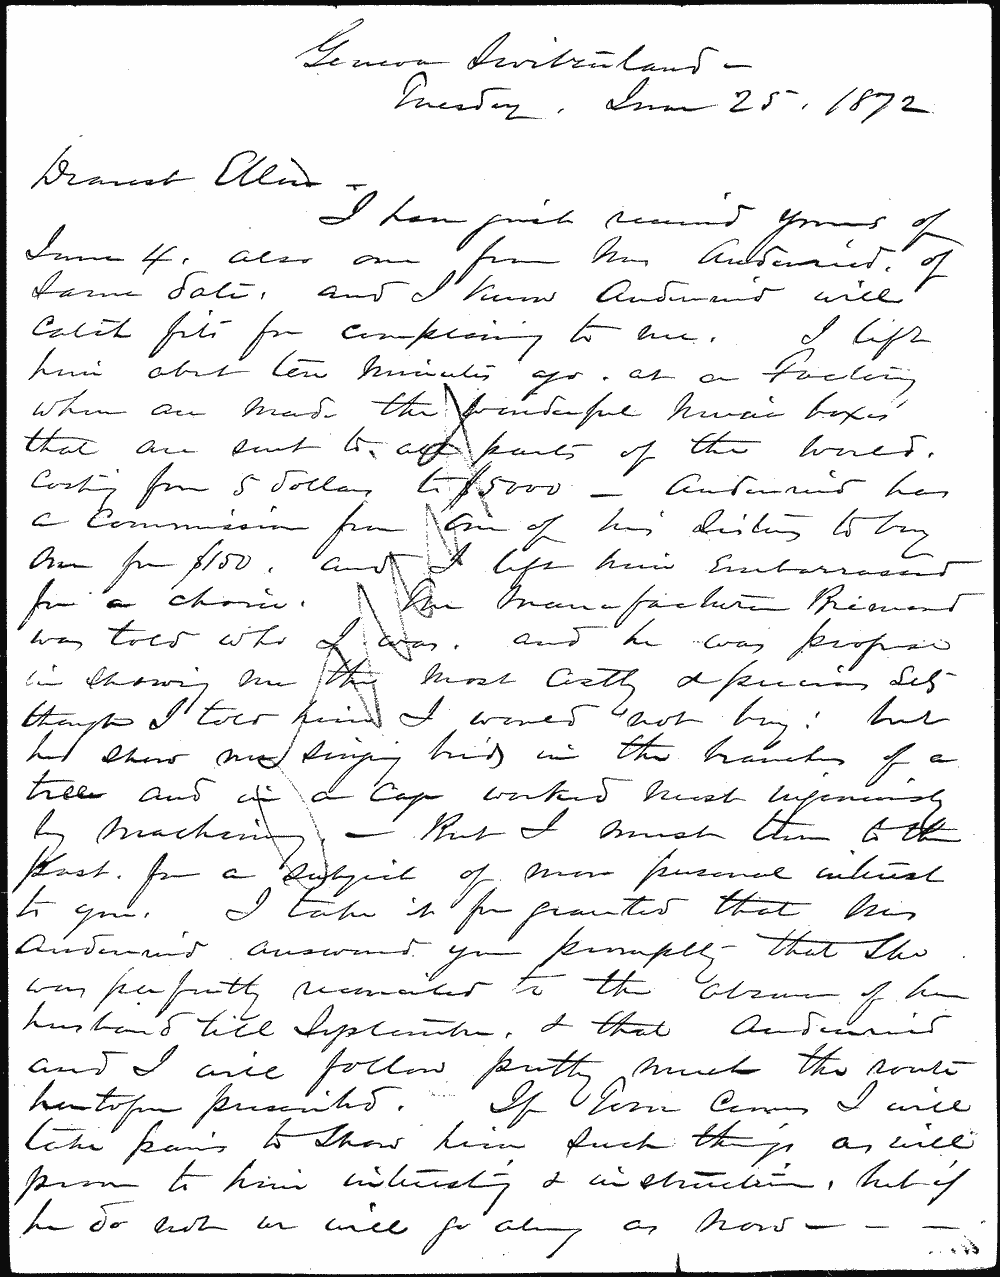 Geneva Switzerland -
Tuesday, June 25, 1872
Dearest Ellen -
I have just received yours of
June 4, also one from Mrs Audenried, of
same date, and I know Audenried will
catch fits for complaining to me. I left
him about ten minutes ago, at a Factory
where are made the wonderful music boxes
that are sent to all parts of the world,
costing from 5 dollars to $5000 - Audenried has
a commission from one of his Sisters to buy
one for $150, and I left him embarrassed
for a choice. The manufacturer
was told who I was, and he was profuse
in showing me the most costly & precious sets
though I told him I would not buy: but
he show me singing birds in the branches of a
tree and in a cage worked most ingeniously
by machinery - But I must turn to the
past, for a subject of more personal interest
to you. I take it for granted that Mrs
Audenried answered you promptly that she
was perfectly reconciled to the absence of her
husband till September, & that Audenried
and I will follow pretty much the route
heretofore prescribed. If Tom comes I will
take pains to show him such things as will
prove to him interesting & instructive, but if
he do not we will go along as now - - -